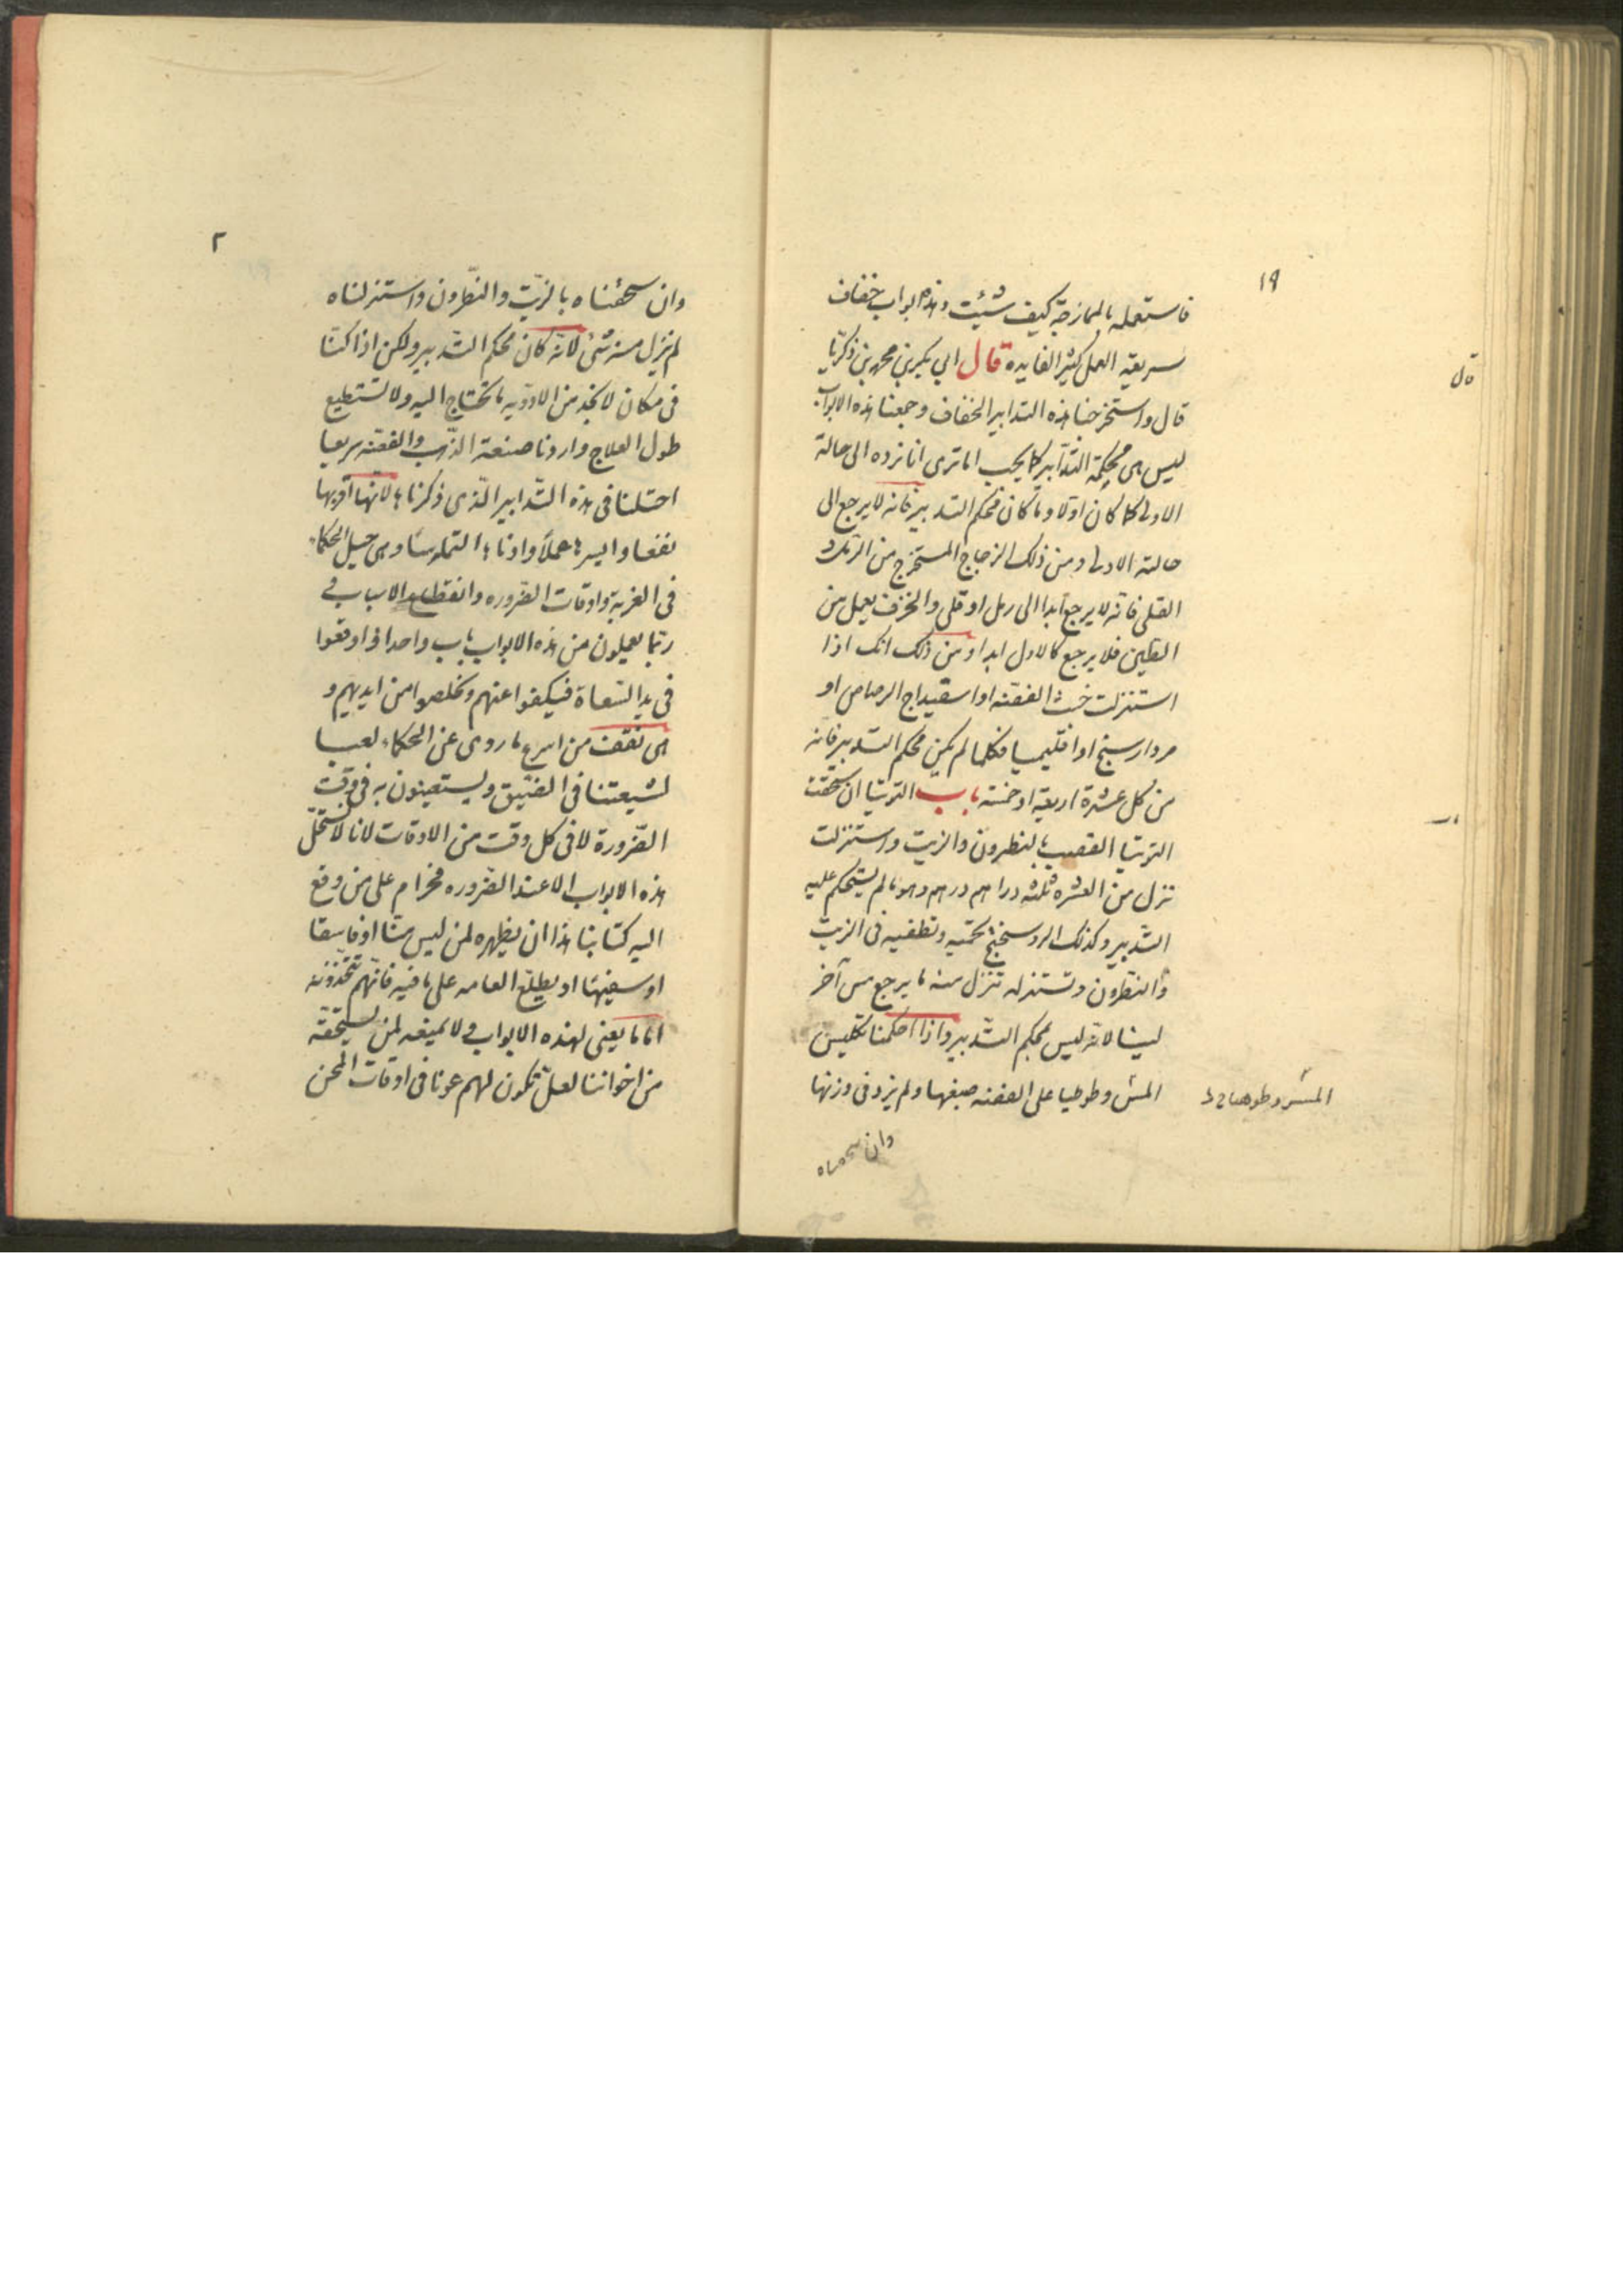 ١٩
فاستعمله بالممازجة كيف شئيت وهذه ابواب خفاف
سريعة العمل كثير الفايده قال ابي بكر بن محمد بن زكريا
قال واستخرجنا هذه التدابير الخفاف وجمعنا هذه الابواب
ليس هى محكمة التدابير كما يجب اما ترى انا نرده الى حالة
الاولى كما كان اولا وما كان محكم التدبير فانه لا يرجع الى
حالته الاولى ومن ذلك الزجاج المستخرج من الرمل و
القلى فانه لا يرجع ابدا الى رمل او قلى والخزف يعمل من
الطين فلا يرجع كالاول ابدا ومن ذلك انك اذا
استنزلت خبث الفضه او اسفيداج الرصاص او
مردارسنج او اقليميا فكلما لم يكن محكم التدبير فانه
من كل عشرة اربعة او خمسة باب التوتيا ان سحقت
التوتيا القصب بالنطرون والزيت واستنزلت
تنزل من العشره ثلثه دراهم درهم وهو ما لم يستحكم عليه
التدبير وكذلك الروسختج تحميه وتطفيه فى الزيت
والنطرون وتستنزله تنزل منه ما يرجع مس آخر
لينا لانه ليس بمحكم التدبير واذا احكمنا تكليس
المس وطوحيا على الفضه صبغها ولم يزد فى وزنها
وان سحقناه
قال
باب
٢
وان سحقناه بالزيت والنطرون واستنزلناه
لم ينزل منه شئ لانه كان محكم التدبير ولكن اذا كنا
فى مكان لا نجد من الادويه ما نحتاج اليه ولا نستطيع
طول العلاج واردنا صنعة الذهب والفضه سريعا
احتلنا فى هذه التدابير الذى ذكرنا ها لانها اقربها
نفعا وايسر ها عملا وادنا ها التماسا وهى حيل الحكماء
فى الغربة واوقات الضروره وانقطاع الاسباب
ربما يعملون من هذه الابواب باب واحد اذا وقعوا
فى يد السعاة فيكفوا عنهم وتخلصوا من ايديهم و
هى من اسرع ما روى عن الحكماء
لشيعتنا فى الضيق ويستعينون به فى وقت
الضرورة لا فى كل وقت من الاوقات لانا لا نستحل
هذه الابواب الا عند الضروره فحرام على من وقع
اليه كتابنا هذا ان يظهره لمن ليس منا او فاسقا
او سفيها او يطلع العامه على ما فيه فانهم يتخذونه
اما ما يعنى لهذه الابواب ولا يمنعه لمن يستحقه
من اخواننا لعل تكون لهم عونا فى اوقات المحن